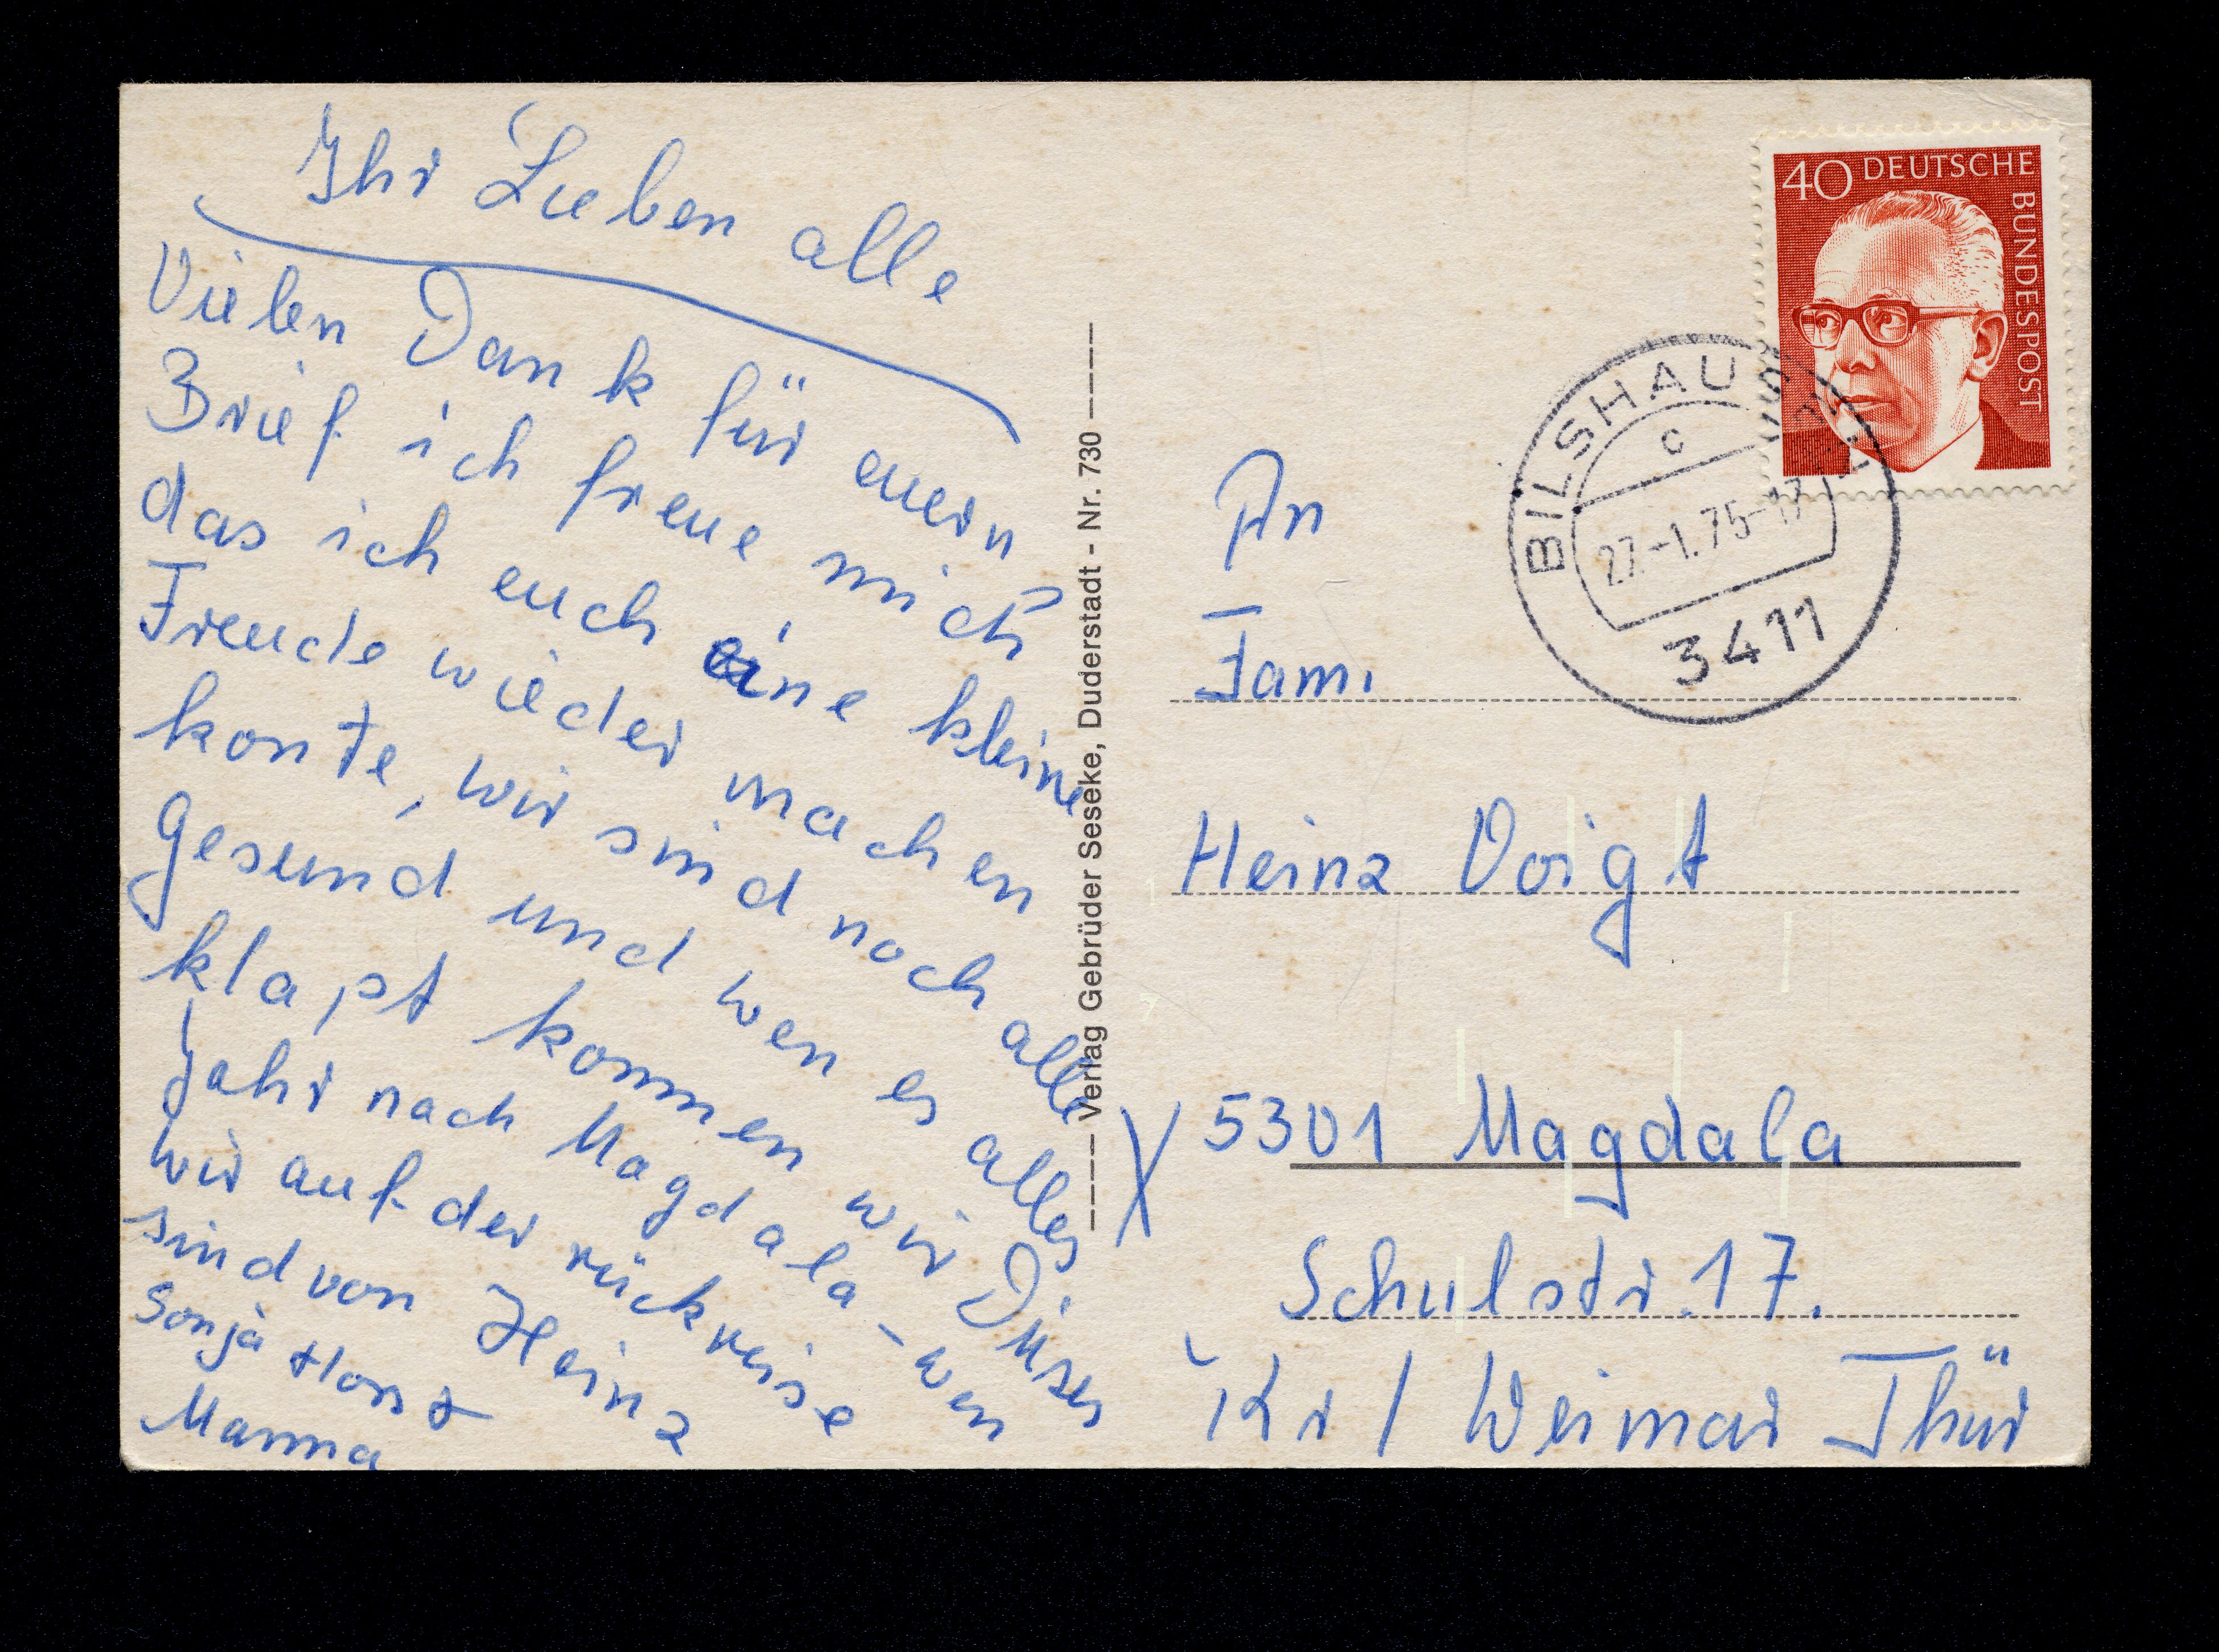 Ihr Lieben alle
Vielen Dank für euern
Brief ich freue mich
das ich euch eine kleine
Freude wieder machen
konte, wir sind noch alle
gesund und wen es alles
klapt kommen wir Dises
Jahr nach Magdala - wen
wir auf der rückreise
sind von Heinz
Sonja Horst
Mamma
Verlag Gebrüder Seseke, Duderstadt - Nr. 730
40 DEUTSCHE
BUNDESPOST
BILSHAUSEN
c
27.-1.75-17
3411
An
Fam.
Heinz Voigt
X 5301 Magdala
Schulstr. 17.
Kr / Weimar Thür